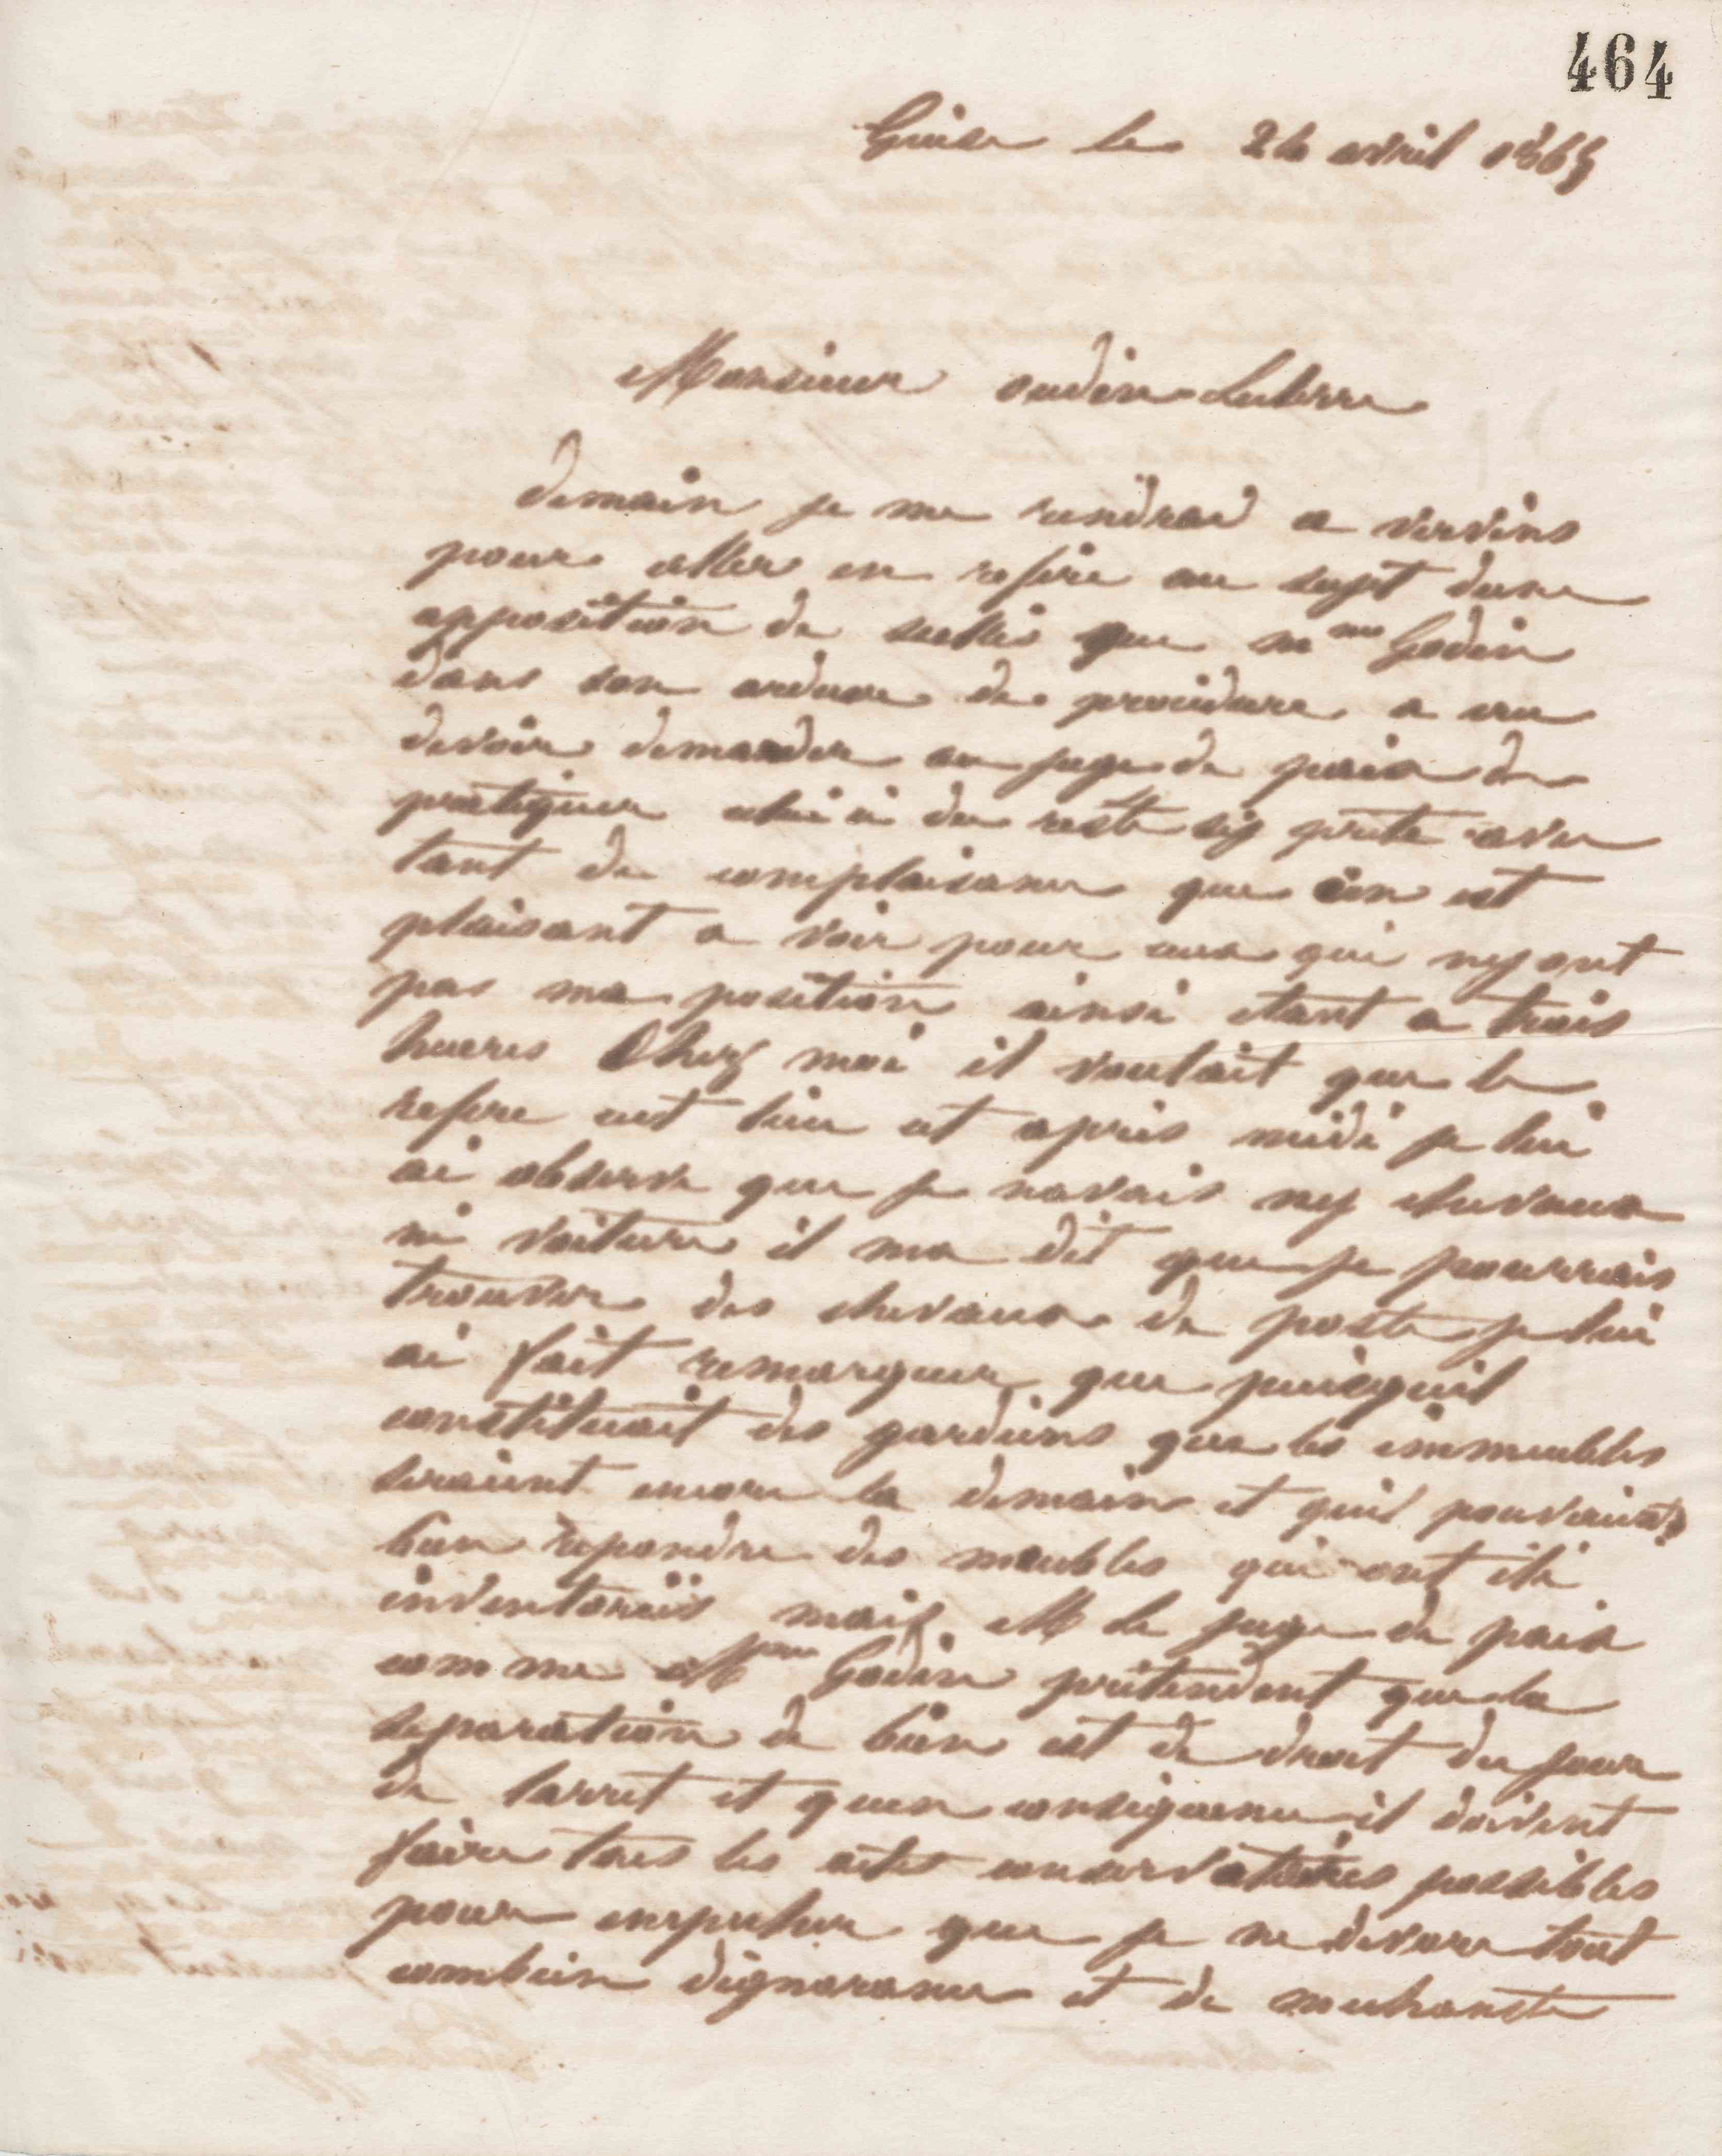 464
Guise le 24 avril 1865
Monsieur oudin-Leclerre
demain je me rendrai a vervins
pour aller en refere au sujet dune
apposition de scellés que Mme Godin
dans son ardeur de procedure a cru
devoir demander au juge de paix de
pratiquer celui ci du reste sy prete avec
tant de complaisance que cen est
plaisant a voir pour ceux qui nyont
pas ma position ainsi etant a trois
heures Chez moi il voulait que le
refere eut lieu cet apres midi je lui
ai observe que je navais ny chevaux
ni voiture il ma dit que je pourrais
trouver des chevaux de poste je lui
ai fait remarquer que puisquil
constituait des gardiens que les immeubles
seraient encore la demain et quil pouvaient
bien repondre des meubles qui ont été
inventoriés mais M le juge de paix
comme Mme Godin prétendent que la
separation de bien est de droit du jour
de larret et quen consequence il doivent
faire tous les actes conservatoires possibles
pour empecher que je ne devore tout
combien dignorance et de mechanste